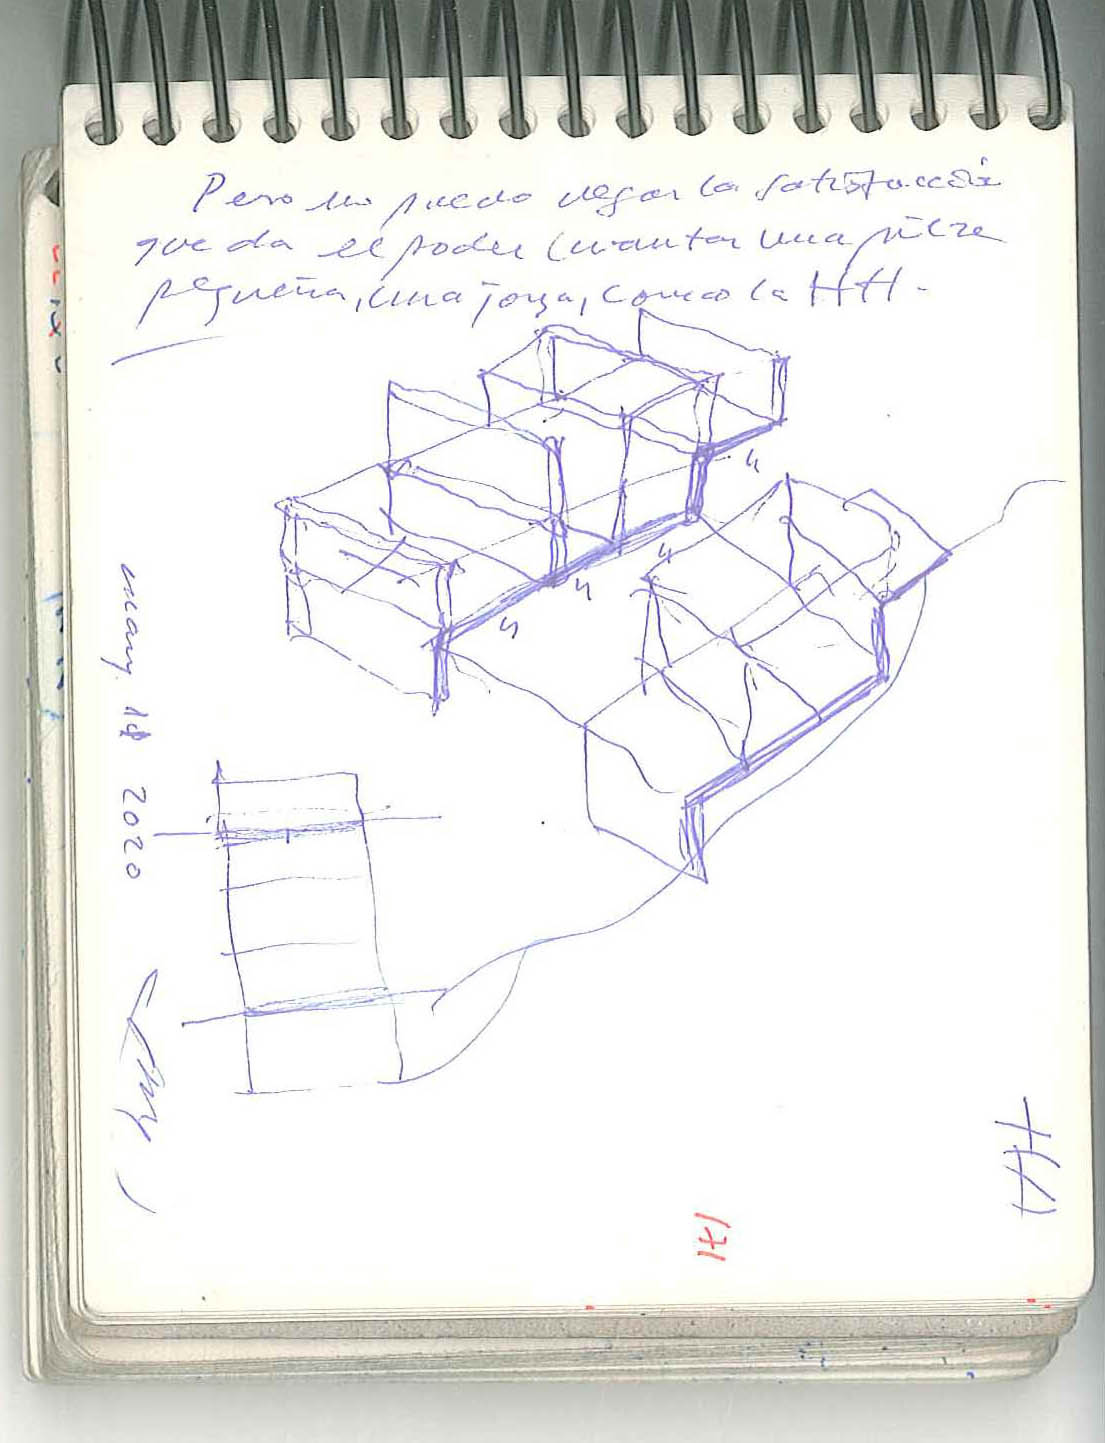 Pero no puedo negar la satisfacción
que da el poder levantar una pieza
pequeña, una joya, como la HH.
4
4
4
4
may. 2020
HH